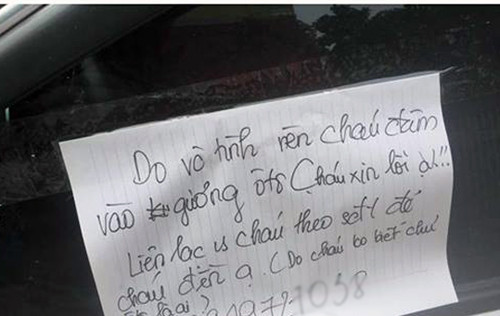 Do vô tình nên cháu đâm
vào gương ôtô Cháu xin lỗi ạ!!
Liên lạc vs cháu theo sđt để
cháu đền ạ. (Do cháu ko biết chủ
là ai)
1038